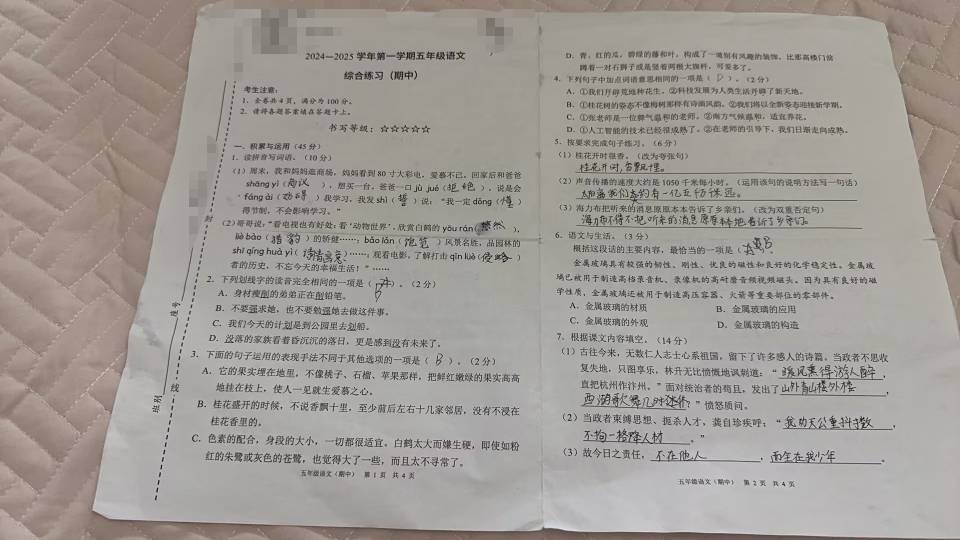 2024—2025 学年第一学期五年级语文
综合练习（期中）
考生注意：
1．全卷共 4 页，满分为 100 分。
2．请将各题答案填在答题卡上。
书写等级：☆☆☆☆☆
一、积累与运用（45 分）
1．读拼音写词语。（10 分）
（1）周末，我和妈妈逛商场，妈妈看到 80 寸大彩电，爱慕不已。回家后和爸爸
shāng yì（商议），想买一台。爸爸一口 jù jué（拒绝），说是会
“fáng ài（妨碍）我学习。我发 shì（誓）说：“我一定 dǒng（懂）
得节制，不会影响学习。”
（2）哥哥说：“看电视也有好处：看‘动物世界’，欣赏白鹤的 yōu rán（ 然），
liè bào（猎豹）的矫健……；bǎo lǎn（饱览）风景名胜，品园林的
shī qíng huà yì（ ）……；观看电影，了解打击 qīn lüè（侵略）
者的历史，不忘今天的幸福生活！”……
2．下列划线字的读音完全相同的一项是（ ）。（2 分）
A．身材瘦削的弟弟正在削铅笔。
B．不要强求她，也不要勉强她去做这件事。
C．我们今天的计划是到公园里去划船。
D．没落的家族看着昏沉沉的落日，更是感到没有未来了。
3．下面的句子运用的表现手法不同于其他选项的一项是（ B ）。（2 分）
A．它的果实埋在地里，不像桃子、石榴、苹果那样，把鲜红嫩绿的果实高高
地挂在枝上，使人一见就生爱慕之心。
B．桂花盛开的时候，不说香飘十里，至少前后左右十几家邻居，没有不浸在
桂花香里的。
C．色素的配合，身段的大小，一切都很适宜。白鹤太大而嫌生硬，即使如粉
红的朱鹭或灰色的苍鹭，也觉得大了一些，而且太不寻常了。
五年级语文（期中） 第 1 页 共 4 页
封
线
座号
班别
D．青、红的瓜，碧绿的藤和叶，构成了一道别有风趣的装饰，比那高楼门前
蹲着一对石狮子或是竖着两根大旗杆，可爱多了。
4．下列句子中加点词语意思相同的一项是（ D ）。（2 分）
A．①我们开辟荒地种花生。②科技发展为人类生活开辟了新天地。
B．①桂花树的姿态不像梅树那样有诗画风韵。②我们将以全新姿态迎接新学期。
C．①张老师是一位脾气温和的老师。②南方气候温和，适宜养花。
D．①人工智能的技术已经很成熟了。②在老师的引导下，我们日渐走向成熟。
5．按要求完成句子练习。（6 分）
（1）桂花开时很香。（改为夸张句）
桂花开时，香飘 里。
（2）声音传播的速度大约是 1050 千米每小时。（运用该句的说明方法写一句话）
（3）海力布把听来的消息原原本本告诉了乡亲们。（改为双重否定句）
海力布不得不把听来的消息原原本本地告诉了乡亲们。
6．语文与生活。（3 分）
概括这段话的主要内容，最恰当的一项是（ B ）
金属玻璃具有较强的韧性、刚性、优良的磁性和良好的化学稳定性。金属玻
璃已被用于制造高档录音机、录像机的高耐磨音频视频磁头。因为具有良好的磁
学性质，金属玻璃还被用于制造高压容器、火箭等重要部位的零部件。
A．金属玻璃的材质 B．金属玻璃的应用
C．金属玻璃的外观 D．金属玻璃的构造
7．根据课文内容填空。（14 分）
（1）古往今来，无数仁人志士心系祖国，留下了许多感人的诗篇。当政者不思收
复失地，只图享乐，林升无比愤慨地讽刺道：“暖风熏得游人醉，
直把杭州作汴州。”面对统治者的苟且，发出了“山外青山楼外楼，
西湖歌舞几时休”愤怒质问。
（2）当政者束缚思想、扼杀人才，龚自珍疾呼：“我劝天公重抖擞，
不拘一格降人材。”
（3）故今日之责任，不在他人，而全在我少年。
五年级语文（期中） 第 2 页 共 4 页